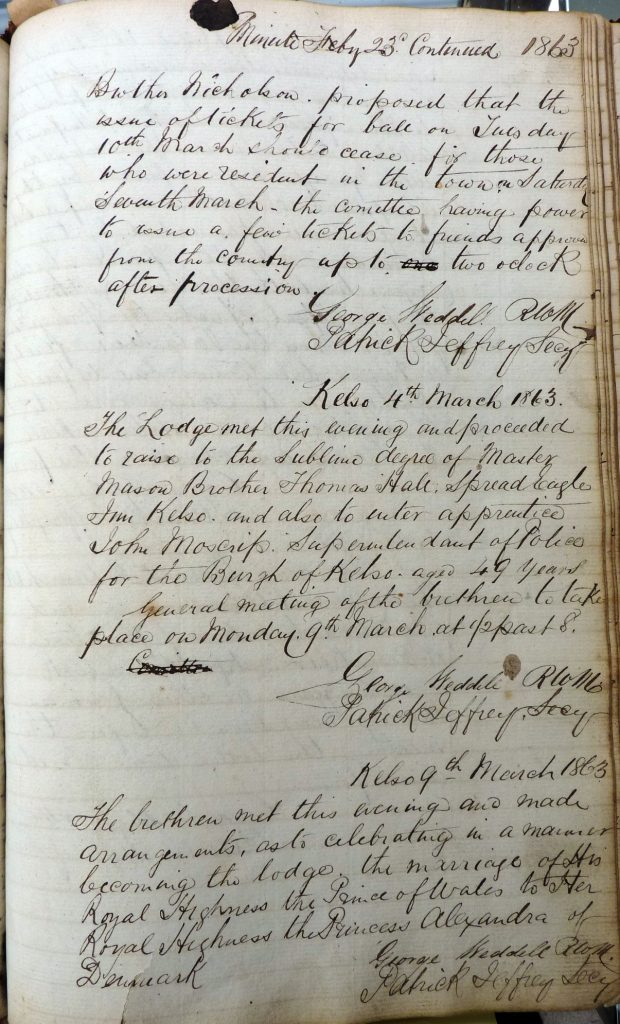 Minute Feby 23d Continued 1863
Brother Nicholson. proposed that the
issue of tickets for ball on Tuesday
10th March should cease for those
who were resident in the town on Saturday
Seventh March - the comittee having power
to issue a few tickets to friends approven
from the country up to one two oclock
after procession.
George Weddell RWM
Patrick Jeffrey Secy
Kelso 4th March 1863.
The Lodge met this evening and proceeded
to raise to the Sublime degree of Master
Mason Brother Thomas Hall. Spread eagle
Inn Kelso. and also to enter apprentice
John Moscrip. Superintendant of Police
for the Burgh of Kelso. aged 49 years
General meeting of the brethren to take
place on Monday. 9th March at ½ past 8.
George Weddell RWM
Patrick Jeffrey. Secy
Kelso 9th March 1863
The brethren met this evening and made
arrangements, as to celebrating in a manner
becoming the lodge, the marriage of His
Royal Highness the Prince of Wales to Her
Royal Highness the Princess Alexandra of
Denmark
George Weddell RWM.
Patrick Jeffrey Secy